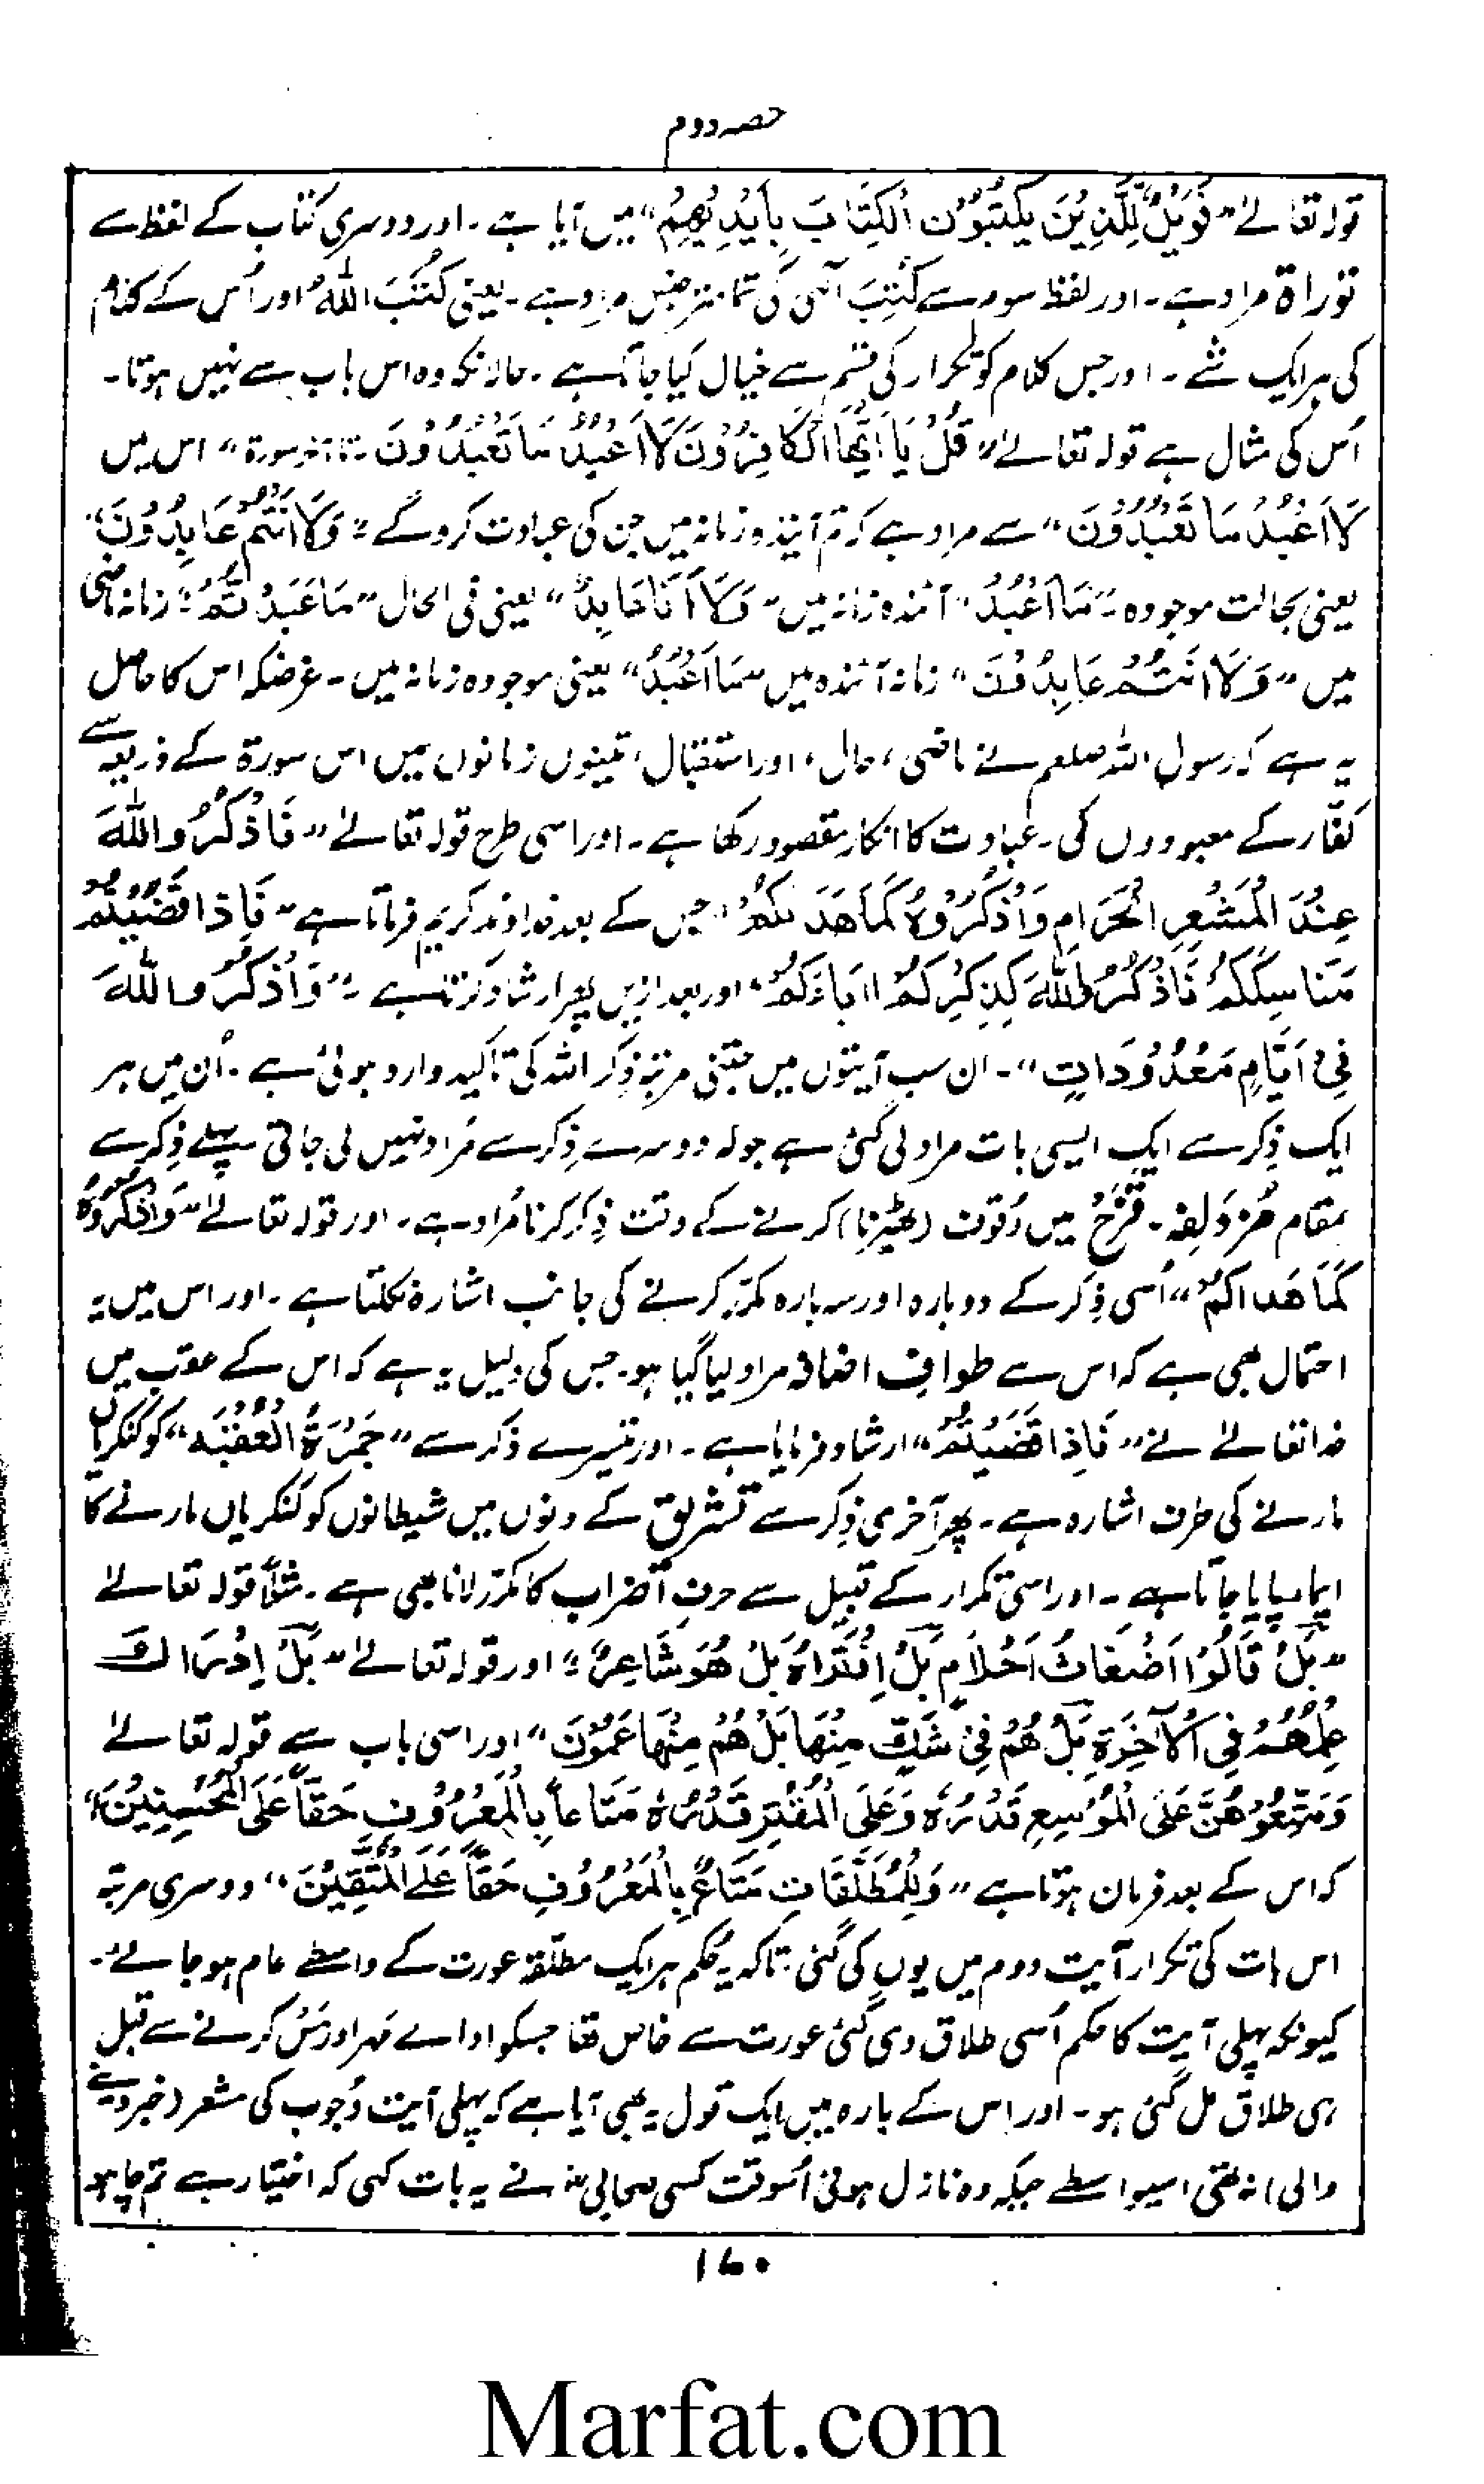 حصہ دوم
قولہ تعالےٰ "فَوَيْلٌ لِّلَّذِيْنَ يَكْتُبُوْنَ الْكِتَابَ بِأَيْدِيْهِمْ" میں آیا ہے۔ اور دوسری کتاب کے لفظ سے
توراۃ مراد ہے۔ اور لفظ سوم سے کُتُب آلٰہی کی تمامتر جنس مراد ہے۔ یعنی کُتُبَ اللّٰہ اور اُس کے کلام
کی ہر ایک شے۔ اور جس کلام کو تکرار کی قسم سے خیال کیا جاتا ہے۔ حالانکہ وہ اس باب سے نہیں ہوتا۔
اُس کی مثال ہے قولہ تعالےٰ "قُلْ يَا اَيُّهَا الْكَافِرُوْنَ لَا اَعْبُدُ مَا تَعْبُدُوْنَ ۔ تا آخر سورۃ" اس میں
لَا اَعْبُدُ مَا تَعْبُدُوْنَ" سے مراد ہے کہ تم آیندہ زمانہ میں جن کی عبادت کرو گے "وَلَا اَنْتُمْ عَابِدُوْنَ"
یعنی بحالت موجودہ ۔ "مَا اَعْبُدُ" آئندہ زمانہ میں "وَلَا اَنَا عَابِدٌ" یعنی فی الحال "مَا عَبَدْتُّمْ" زمانہ ماضی
میں "وَلَا اَنْتُمْ عَابِدُوْنَ" زمانہ آئندہ میں "مَا اَعْبُدُ" یعنی موجودہ زمانہ میں۔ غرضکہ اس کا حاصل
یہ ہے کہ رسول اللہ صلعم نے ماضی، حال، اور استقبال، تینوں زمانوں میں اس سورۃ کے ذریعہ سے
کفّار کے معبودوں کی عبادت کا انکار مقصود رکھا ہے۔ اور اسی طرح قولہ تعالےٰ "فَاذْكُرُوا اللّٰهَ
عِنْدَ الْمَشْعَرِ الْحَرَامِ وَاذْكُرُوْهُ كَمَا هَدَىٰكُمْ" جس کے بعد خداوند کریم فرماتا ہے "فَاِذَا قَضَيْتُمْ
مَنَاسِكَكُمْ فَاذْكُرُوا اللّٰهَ كَذِكْرِكُمْ اٰبَاءَكُمْ" اور بعد ازیں پھر ارشاد کرتا ہے ۔ "وَاذْكُرُوا اللّٰهَ
فِيْ اَيَّامٍ مَعْدُوْدَاتٍ"۔ ان سب آیتوں میں جتنی مرتبہ ذِکر اللہ کی تاکید وارد ہوئی ہے۔ اُن میں ہر
ایک ذِکر سے ایک ایسی بات مراد لی گئی ہے جو کہ دوسرے ذِکر سے مُراد نہیں لی جاتی پہلے ذِکر سے
بمقام مُزدَلِفہ۔ قُزَحْ میں وُقوف (ٹھیرنا) کرنے کے وقت ذِکر کرنا مُراد ہے۔ اور قولہ تعالےٰ "وَاذْكُرُوْهُ
كَمَا هَدَاكُمْ" اُسی ذِکر کے دوبارہ اور سہ بارہ مکرّر کرنے کی جانب اشارہ نکلتا ہے۔ اور اس میں یہ
احتمال بھی ہے کہ اس سے طوافِ افاضہ مراد لیا گیا ہو۔ جس کی دلیل یہ ہے کہ اس کے عقب میں
خدا تعالےٰ نے "فَاِذَا قَضَيْتُمْ" ارشاد فرمایا ہے۔ اور تیسرے ذکر سے "جَمْرَةُ الْعُقْبَہ" کو کنکریاں
مارنے کی طرف اشارہ ہے۔ پھر آخری ذِکر سے تشریق کے دنوں میں شیطانوں کو کنکریاں مارنے کا
ایما پایا جاتا ہے۔ اور اسی تکرار کے قبیل سے حرفِ اَضراب کا مکرّر لانا بھی ہے۔ مثلاً قولہ تعالےٰ
"بَلْ قَالُوْا اَضْغَاثُ اَحْلَامٍ بَلْ اِفْتَرَاهُ بَلْ هُوَ شَاعِرٌ" اور قولہ تعالےٰ "بَلْ اِدّٰرَاكَ
عِلْمُهُمْ فِي الْاٰخِرَةِ بَلْ هُمْ فِيْ شَكٍّ مِنْهَا بَلْ هُمْ مِنْهَا عَمُوْنَ" اور اسی باب سے قولہ تعالےٰ
وَمَتِّعُوْهُنَّ عَلَى الْمُوْسِعِ قَدَرُهٗ وَعَلَى الْمُقْتِرِ قَدَرُهٗ مَتَاعًا بِالْمَعْرُوْفِ حَقًّا عَلَى الْمُحْسِنِيْنَ"
کہ اس کے بعد فرمان ہوتا ہے "وَلِلْمُطَلَّقَاتِ مَتَاعٌ بِالْمَعْرُوْفِ حَقًّا عَلَى الْمُتَّقِيْنَ" دوسری مرتبہ
اس بات کی تکرار آیت دوم میں یوں کی گئی۔ تاکہ یہ حُکم ہر ایک مطلّقہ عورت کے واسطے عام ہو جائے۔
کیونکہ پہلی آیت کا حکم اُسی طلاق دی گئی عورت سے خاص تھا جسکو اداے مَہر اور مَسّ کرنے سے قبل
ہی طلاق مل گئی ہو۔ اور اس کے بارہ میں ایک قول یہ بھی آیا ہے کہ پہلی آیت وُجوب کی مشعر (خبر دینے
والی) نہ تھی اسیواسطے جبکہ وہ نازل ہوئی اُسوقت کسی صحابیؓ نے یہ بات کہی کہ اختیار ہے تم چاہو
۱۷۰
Marfat.com